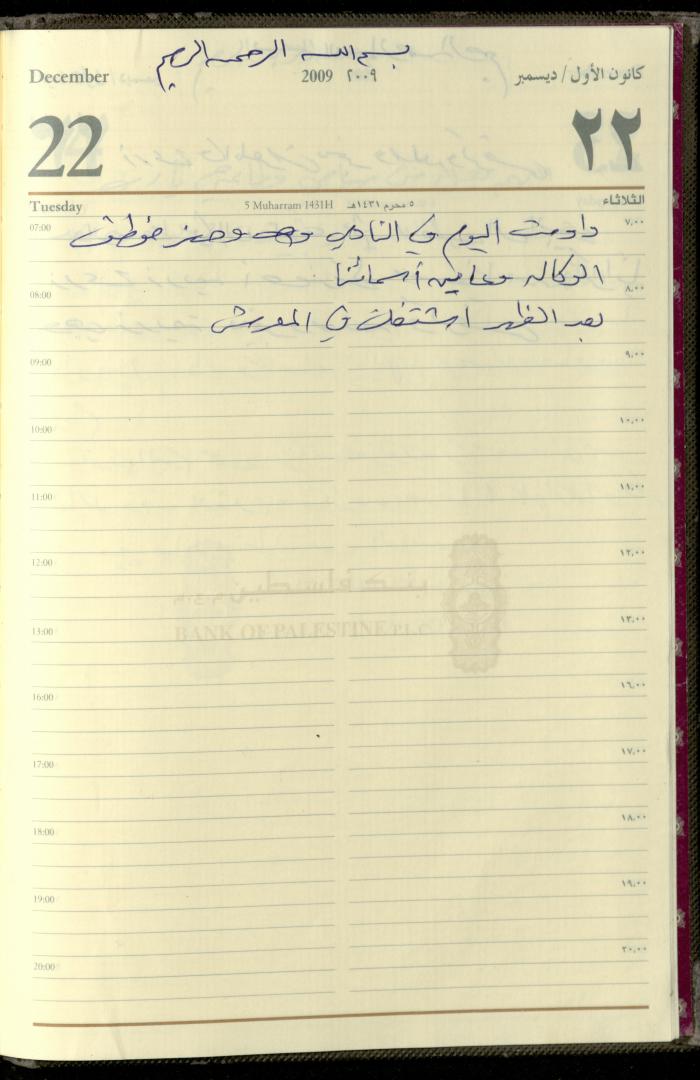 بسم الله الرحمن الرحيم
December 2009 ٢٠٠٩ كانون الأول / ديسمبر
22 ٢٢
Tuesday 5 Muharram 1431H ٥ محرم ١٤٣١هـ الثلاثاء
07:00 ٧,٠٠
داومت اليوم في النادي وحضر موظف
الوكالة أسمائنا
08:00 ٨,٠٠
بعد الظهر اشتغلت في المعرش
09:00 ٩,٠٠
10:00 ١٠,٠٠
11:00 ١١,٠٠
12:00 ١٢,٠٠
13:00 ١٣,٠٠
16:00 ١٦,٠٠
17:00 ١٧,٠٠
18:00 ١٨,٠٠
19:00 ١٩,٠٠
20:00 ٢٠,٠٠
بنك فلسطين
BANK OF PALESTINE PLC